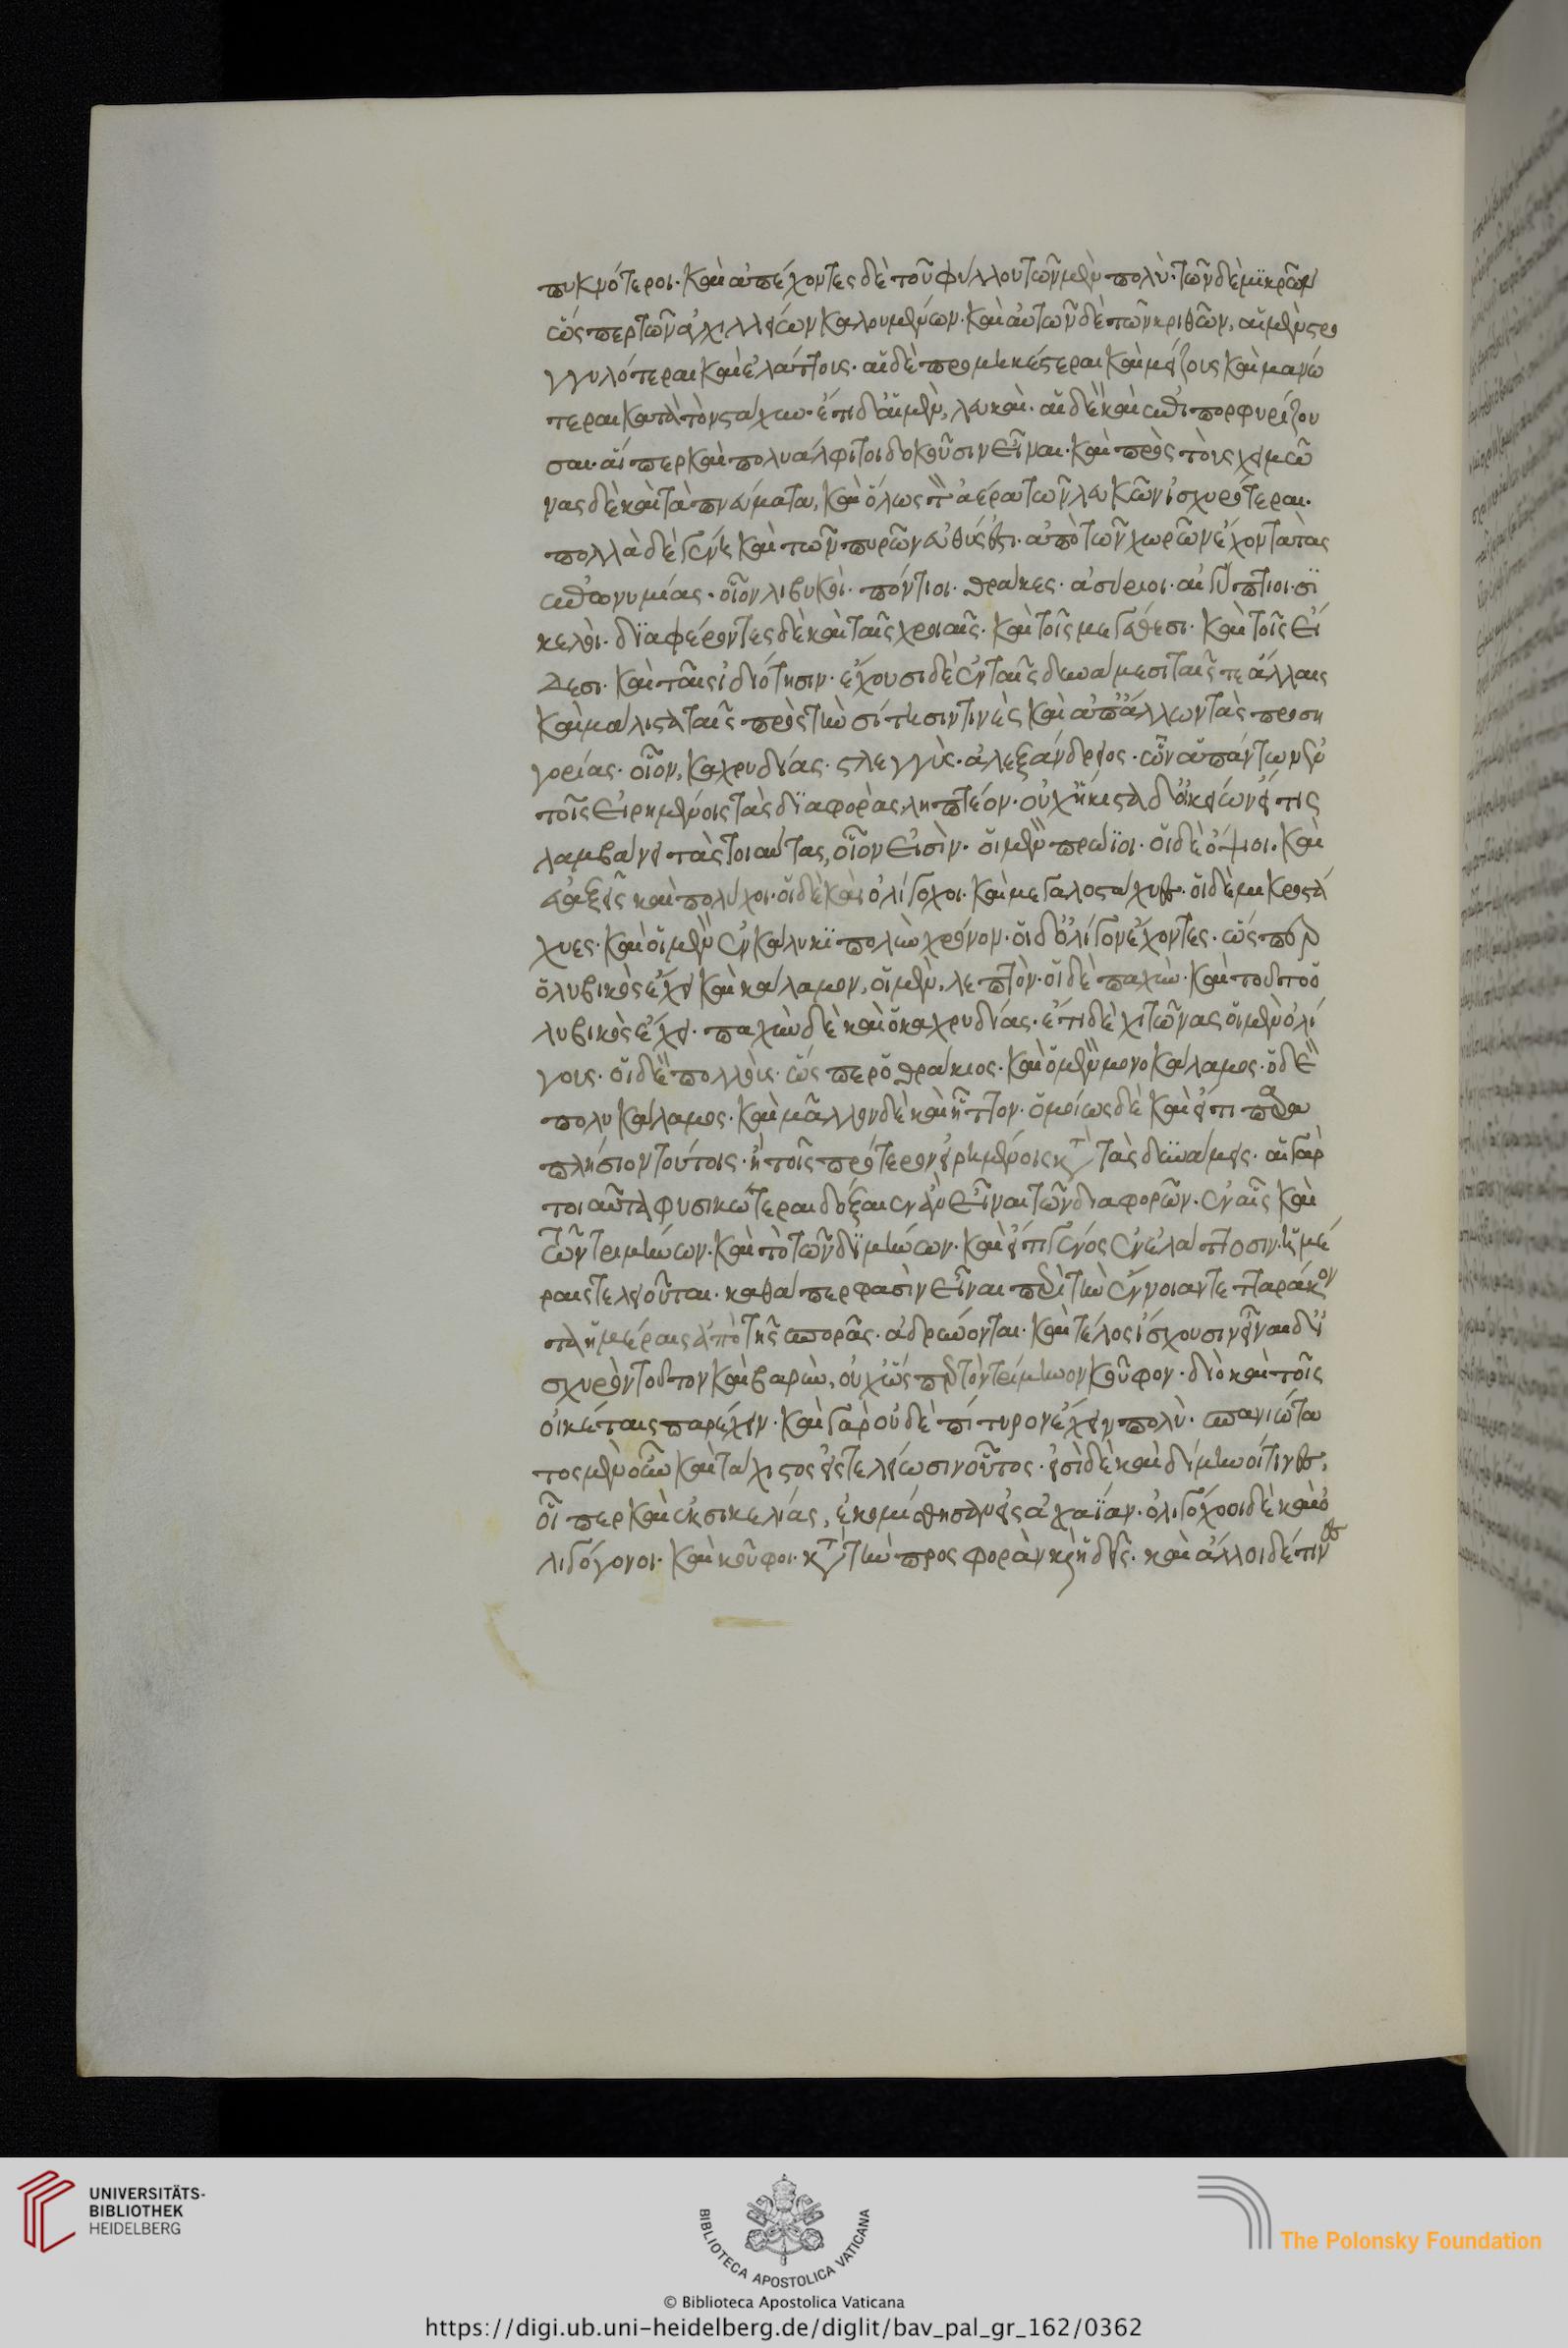 πυκνότεροι· καὶ ἀπέχοντες δὲ τοῦ φύλλου τῶν μὲν πολύ· τῶν δὲ μικρῶν
ὥς περ τῶν ἀχιλλείων καλουμένων· καὶ αὐτῶν δὲ τῶν κριθῶν, αἱ μὲν στρο
γγυλότεραι καὶ ἐλάττους· αἱ δὲ προμηκέστεραι καὶ μείζους καὶ μανώ
τεραι κατὰ τὸν στάχυν· ἔτι δ' αἱ μὲν, λευκαὶ· αἱ δὲ καὶ ἐπιπορφυρίζου
σαι· αἵ περ καὶ πολυάλφιτοι δοκοῦσιν εἶναι· καὶ πρὸς τοὺς χειμῶ
νας δὲ καὶ τὰ πνεύματα, καὶ ὅλως τὸν ἀέρα τῶν λευκῶν ἰσχυρότεραι·
πολλὰ δὲ γένη καὶ τῶν πυρῶν εὐθύς ἐστι· ἀπὸ τῶν χωρῶν ἔχοντα τὰς
ἐπωνυμίας· οἷον λιβυκοὶ· πόντιοι· θρᾶκες· ἀσύριοι· αἰγύπτιοι· σι
κελοὶ· διαφέροντες δὲ καὶ ταῖς χροιαῖς· καὶ τοῖς μεγέθεσι· καὶ τοῖς εἴ
δεσι· καὶ ταῖς ἰδιότησιν· ἔχουσι δὲ ἐν ταῖς δυνάμεσι ταῖς τε ἄλλαις
καὶ μάλιστα ταῖς πρὸς τὴν σίτησιν τινὲς καὶ ἀπ' ἄλλων τὰς προση
γορίας· οἷον, καχρυδίας· στλεγγὺς· ἀλεξάνδρειος· ὧν ἁπάντων ἐν
τοῖς εἰρημένοις τὰς διαφορὰς ληπτέον· οὐχ ἥκιστα δ' οἰκείων ἄν τις
λαμβάνει τὰς τοιαύτας, οἷον εἰσὶν· οἱ μὲν πρώϊοι· οἱ δὲ ὄψιοι· καὶ
εὐαξεῖς καὶ πολύχοι· οἱ δὲ καὶ ὀλιγόχοι· καὶ μεγαλοστάχυες· οἱ δὲ μικροστά
χυες· καὶ οἱ μὲν ἐν κάλυκι πολὺν χρόνον· οἱ δ' ὀλίγον ἔχοντες· ὥς περ
ὁ λυβικὸς ἔχει καὶ κάλαμον, οἱ μὲν, λεπτὸν· οἱ δὲ παχὺν· καὶ τοῦτο ὁ
λυβικὸς ἔχει· παχὺν δὲ καὶ ὁ καχρυδίας· ἔτι δὲ χιτῶνας οἱ μὲν ὀλί
γους· οἱ δὲ πολλοὺς· ὥς περ ὁ θράκιος· καὶ ὁ μὲν μονοκάλαμος· ὁ δὲ
πολυκάλαμος· καὶ μᾶλλον δὲ καὶ ἧττον· ὁμοίως δὲ καὶ εἴ τι παρα
πλήσιον τούτοις· ἢ τοῖς πρότερον εἰρημένοις κατὰ τὰς δυνάμεις· αἱ γὰρ
τοιαῦται φυσικώτεραι δόξαιεν ἂν εἶναι τῶν διαφορῶν· ἐν αἷς καὶ
τῶν τριμήνων· καὶ τὸ τῶν διμήνων· καὶ εἴ τι γένος ἐν ἐλάττοσιν ἡμέ
ραις τελειοῦται· καθάπερ φασὶν εἶναι περὶ τὴν
ἡμέραις ἀπὸ τῆς σπορᾶς· ἁδρύνονται· καὶ τέλος ἴσχουσιν εἶναι δ' ἰ
σχυρὸν τοῦτον καὶ βαρὺν, οὐχ ὥς περ τὸν τρίμηνον κοῦφον· διὸ καὶ τοῖς
οἰκέταις παρέχειν· καὶ γὰρ οὐδὲ πίτυρον ἔχειν πολὺ· σπανιώτα
τος μὲν οὖν καὶ τάχιστος εἰς τελείωσιν οὗτος· εἰσὶ δὲ καὶ δίμηνοί τινες,
οἵ περ καὶ ἐκ σικελίας, ἐκομίσθησαν εἰς ἀχαΐαν· ὀλιγόχοοι δὲ καὶ ὀ
λιγόγονοι· καὶ κοῦφοι· κατὰ τὴν προσφορὰν καὶ ἡδεῖς· καὶ ἄλλοι δέ τινες
UNIVERSITÄTS-
BIBLIOTHEK
HEIDELBERG
BIBLIOTECA APOSTOLICA VATICANA
The Polonsky Foundation
© Biblioteca Apostolica Vaticana
https://digi.ub.uni-heidelberg.de/diglit/bav_pal_gr_162/0362